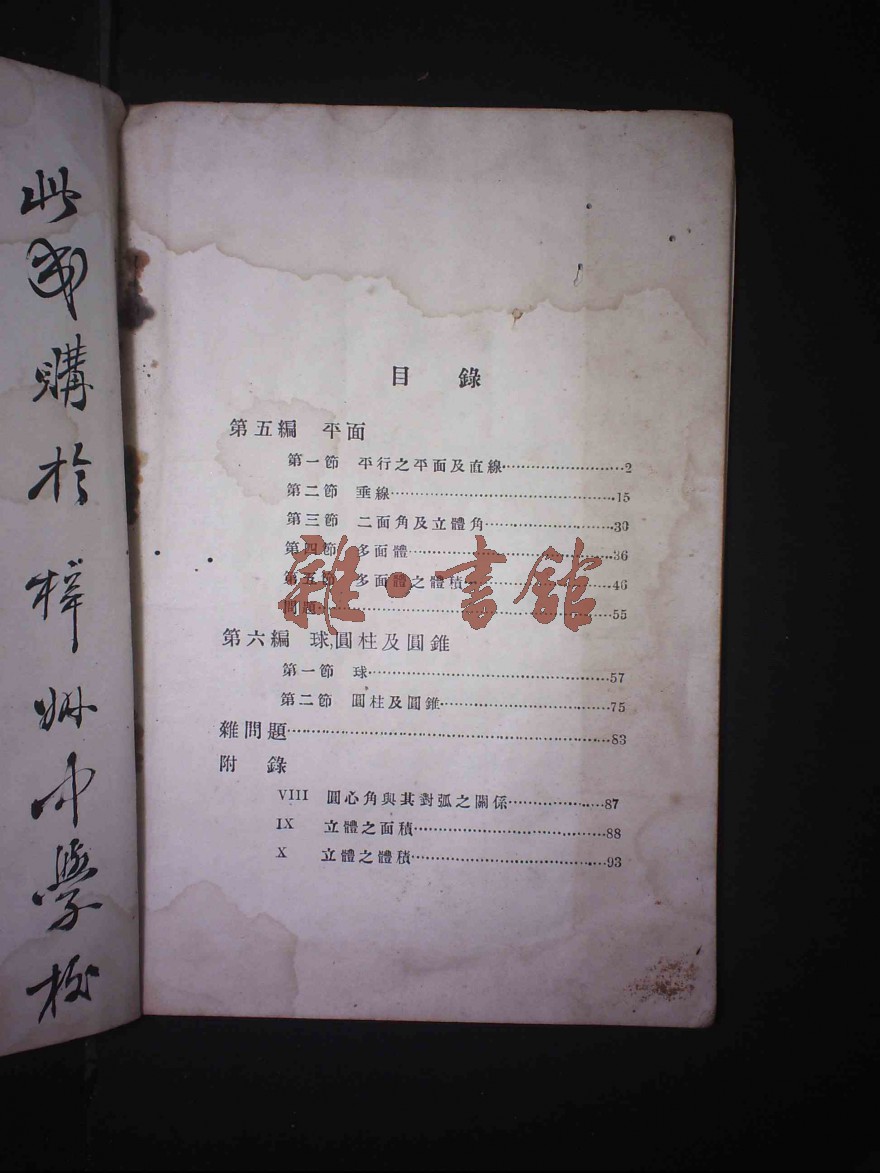 此書購於梓州中學校
目錄
第五編 平面
第一節 平行之平面及直線……………………2
第二節 垂線……………………15
第三節 二面角及立體角……………………30
第四節 多面體……………………36
第五節 多面體之體積……………………46
問題……………………55
第六編 球,圓柱及圓錐
第一節 球……………………57
第二節 圓柱及圓錐……………………75
雜問題……………………83
附錄
VIII 圓心角與其對弧之關係……………………87
IX 立體之面積……………………88
X 立體之體積……………………93
雜·書館